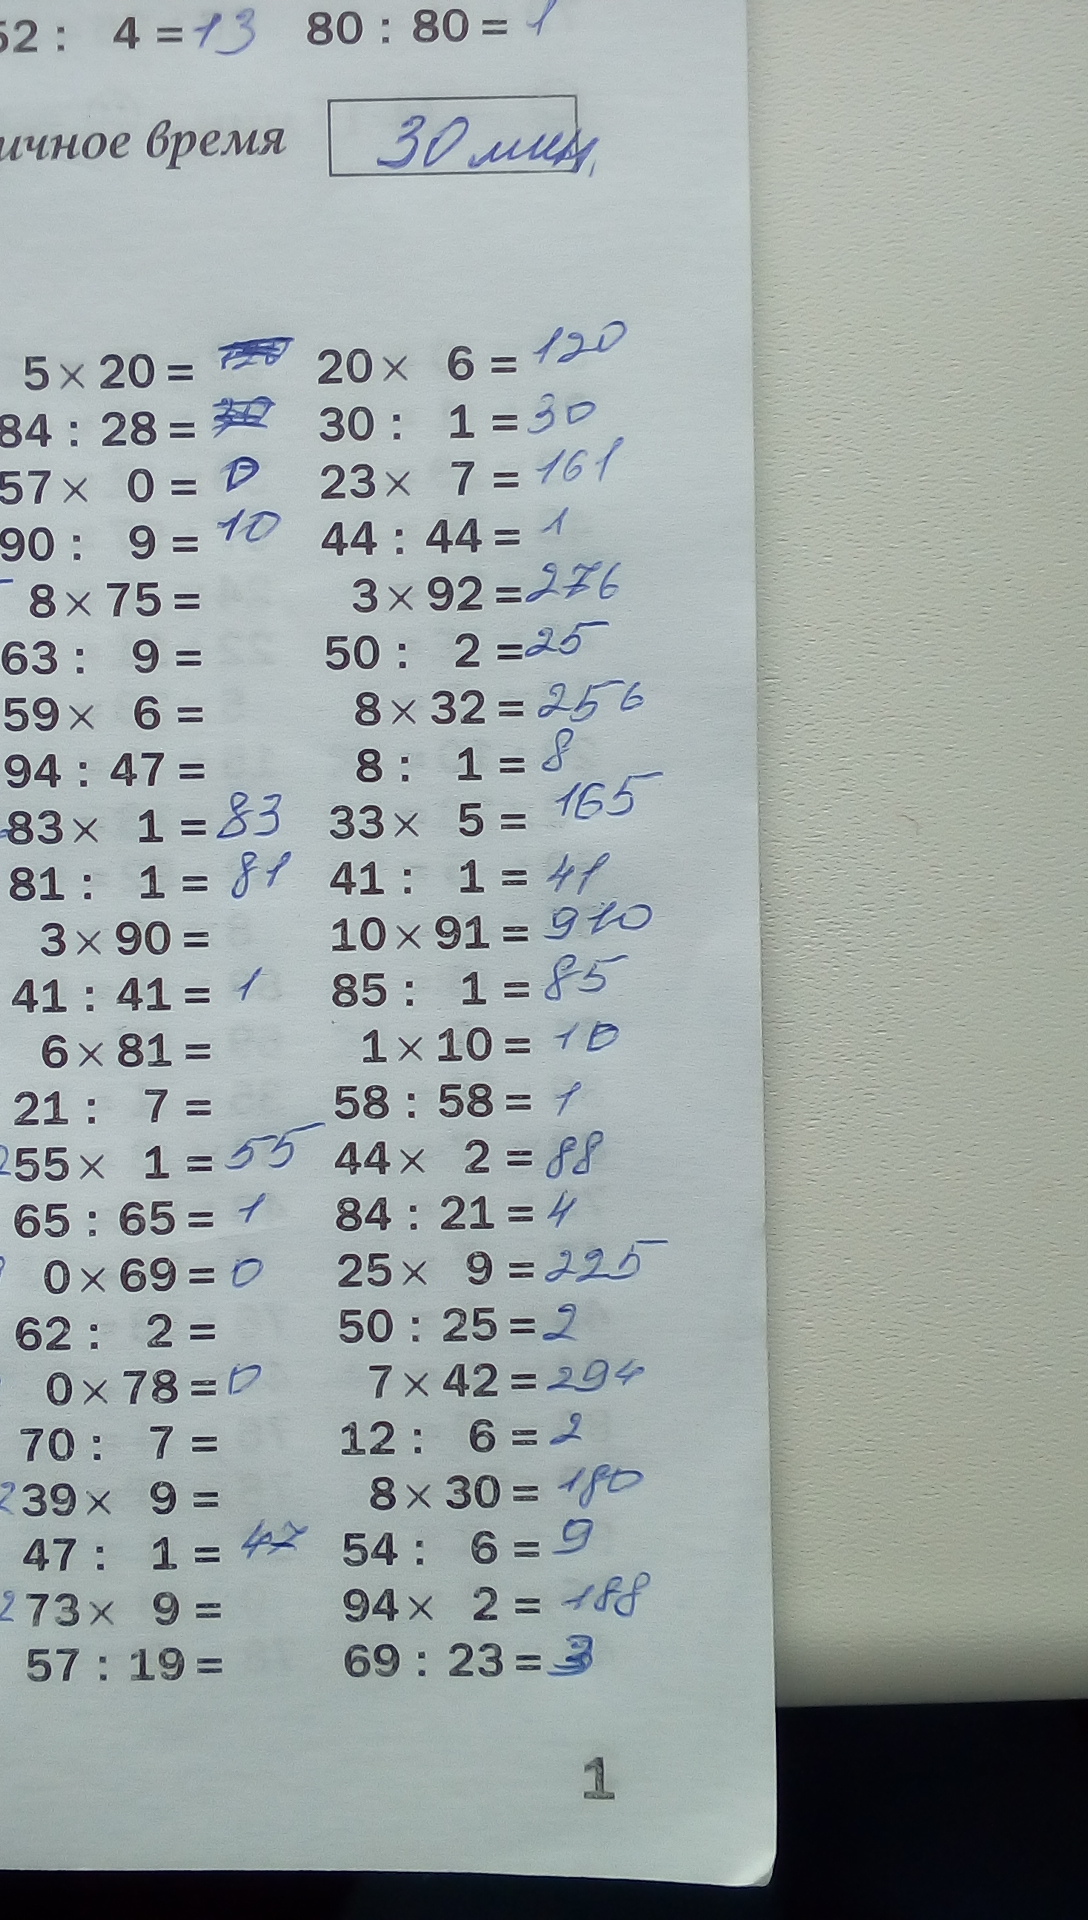 52 : 4 = 13 80 : 80 = 1
ичное время 30 мин.
5 × 20 = 20 × 6 = 120
84 : 28 = 30 : 1 = 30
57 × 0 = 0 23 × 7 = 161
90 : 9 = 10 44 : 44 = 1
8 × 75 = 3 × 92 = 276
63 : 9 = 50 : 2 = 25
59 × 6 = 8 × 32 = 256
94 : 47 = 8 : 1 = 8
83 × 1 = 83 33 × 5 = 165
81 : 1 = 81 41 : 1 = 41
3 × 90 = 10 × 91 = 910
41 : 41 = 1 85 : 1 = 85
6 × 81 = 1 × 10 = 10
21 : 7 = 58 : 58 = 1
55 × 1 = 55 44 × 2 = 88
65 : 65 = 1 84 : 21 = 4
0 × 69 = 0 25 × 9 = 225
62 : 2 = 50 : 25 = 2
0 × 78 = 0 7 × 42 = 294
70 : 7 = 12 : 6 = 2
39 × 9 = 8 × 30 = 180
47 : 1 = 47 54 : 6 = 9
73 × 9 = 94 × 2 = 188
57 : 19 = 69 : 23 = 3
1